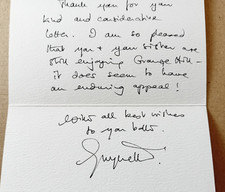 Thank you for your
kind and considerate
letter. I am so pleased
that you & your sister are
still enjoying Grange Hill -
it does seem to have
an enduring appeal!
With all best wishes
to you both.